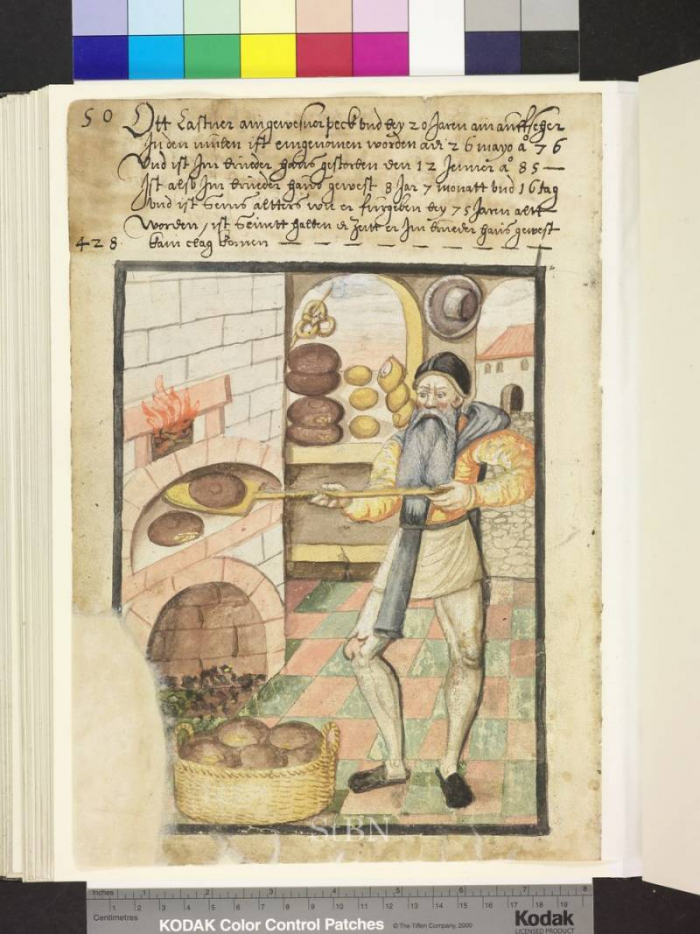 50
Ott Castner ain gewesner peck vnd bey 20 Jaren ain
In den ist eingenomen worden adi 26 mayo aº 76
Vnd ist Im brüeder haus gestorben den 12 Jenner aº 85 —
Ist also Im brüeder haus gewest 8 Jar 7 monatt vnd 16 tag
vnd ist seins altters wie er fürgeben bey 75 Jaren altt
worden / ist halben die zeitt er Im brüeder haus gewest
428 kain clag komen — — — — — — — —
StBN
Inches 1 2 3 4 5 6 7 8
Centimetres 1 2 3 4 5 6 7 8 9 10 11 12 13 14 15 16 17 18 19
KODAK Color Control Patches © The Tiffen Company, 2000 Kodak
LICENSED PRODUCT